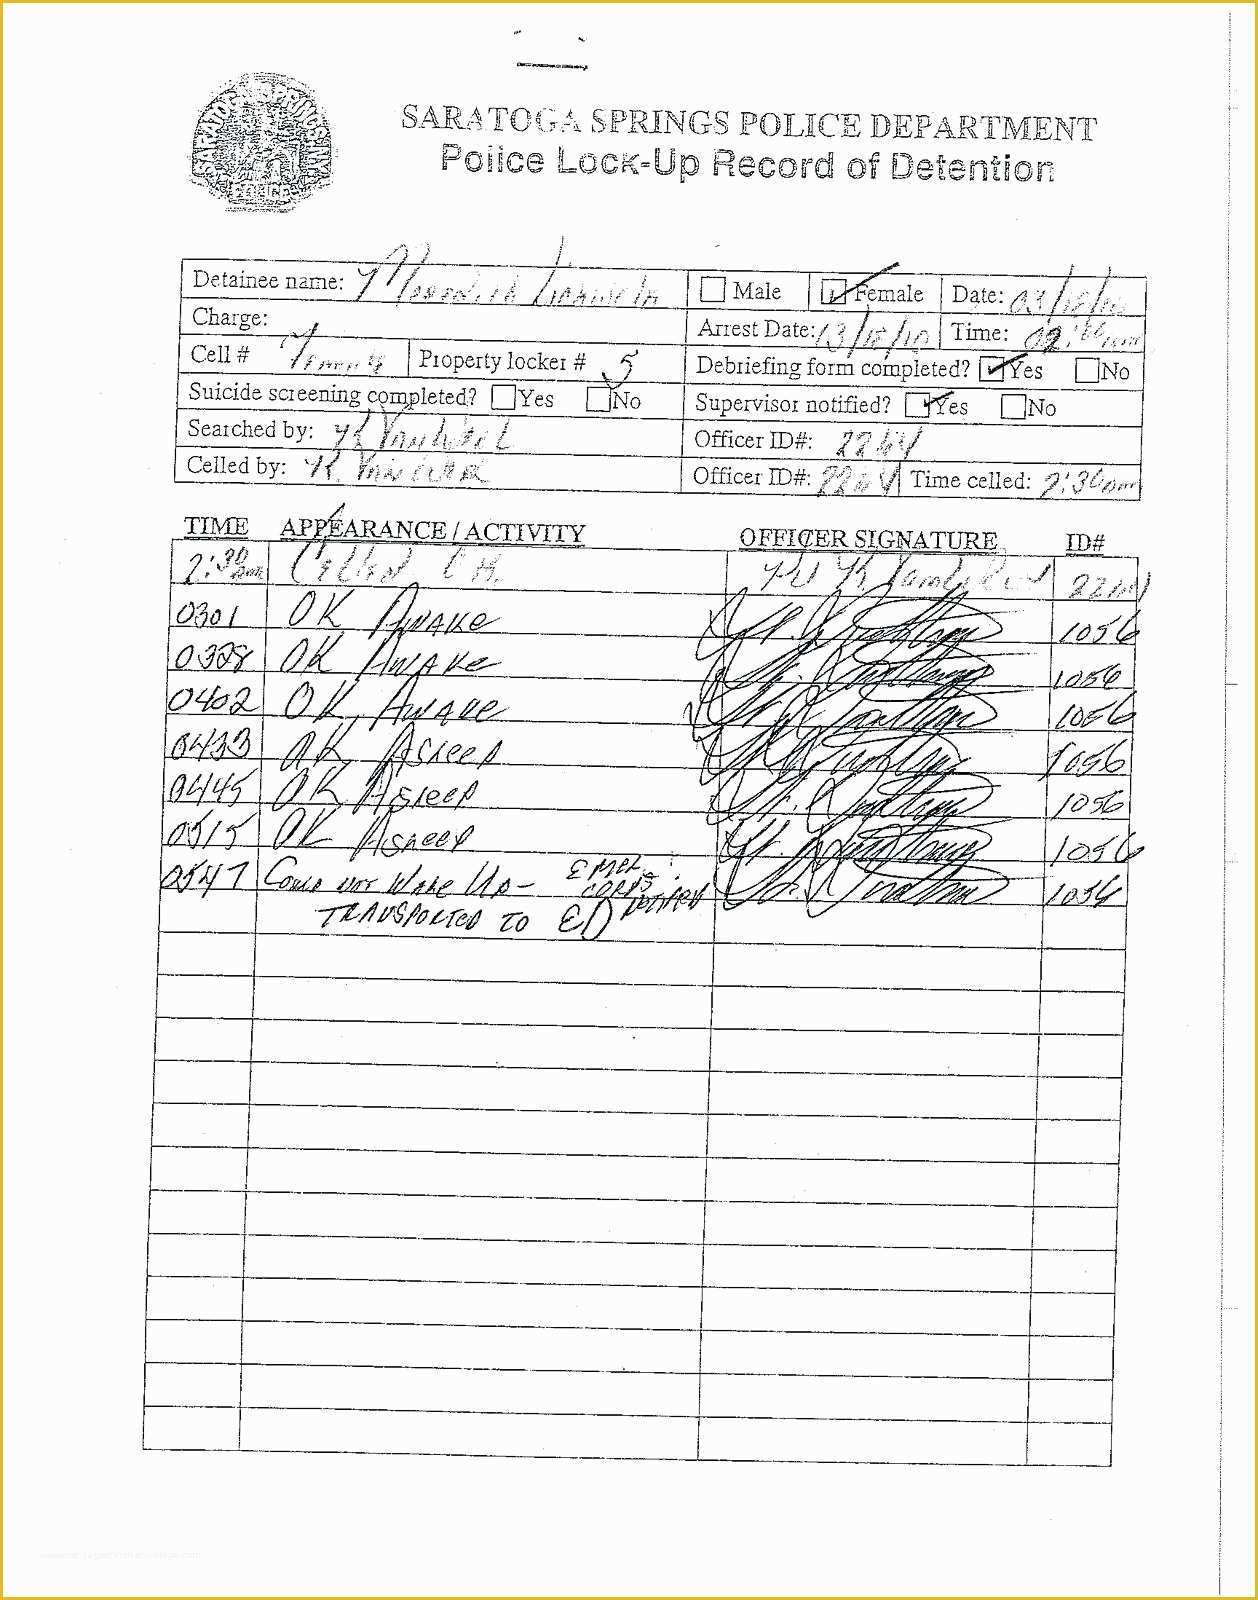 SARATOGA SPRINGS POLICE DEPARTMENT
Police Lock-Up Record of Detention
SARATOGA SPRINGS, N.Y. POLICE
Detainee name: Male Female Date: 03/18/10
Charge: Arrest Date: 03/18/10 Time:
Cell # Property locker # 5 Debriefing form completed? Yes No
Suicide screening completed? Yes No Supervisor notified? Yes No
Searched by: Officer ID#: 2264
Celled by: Officer ID#: 2264 Time celled: 2:30am
TIME APPEARANCE / ACTIVITY OFFICER SIGNATURE ID#
2:30am Celled OK. 2264
0301 OK AWAKE 1056
0328 OK AWAKE 1056
0402 OK, AWAKE 1056
0433 OK ASLEEP 1056
0445 OK ASLEEP 1056
0515 OK ASLEEP 1056
0547 COULD NOT WAKE UP - 1056
CORPS NOTIFIED
TRANSPORTED TO ED